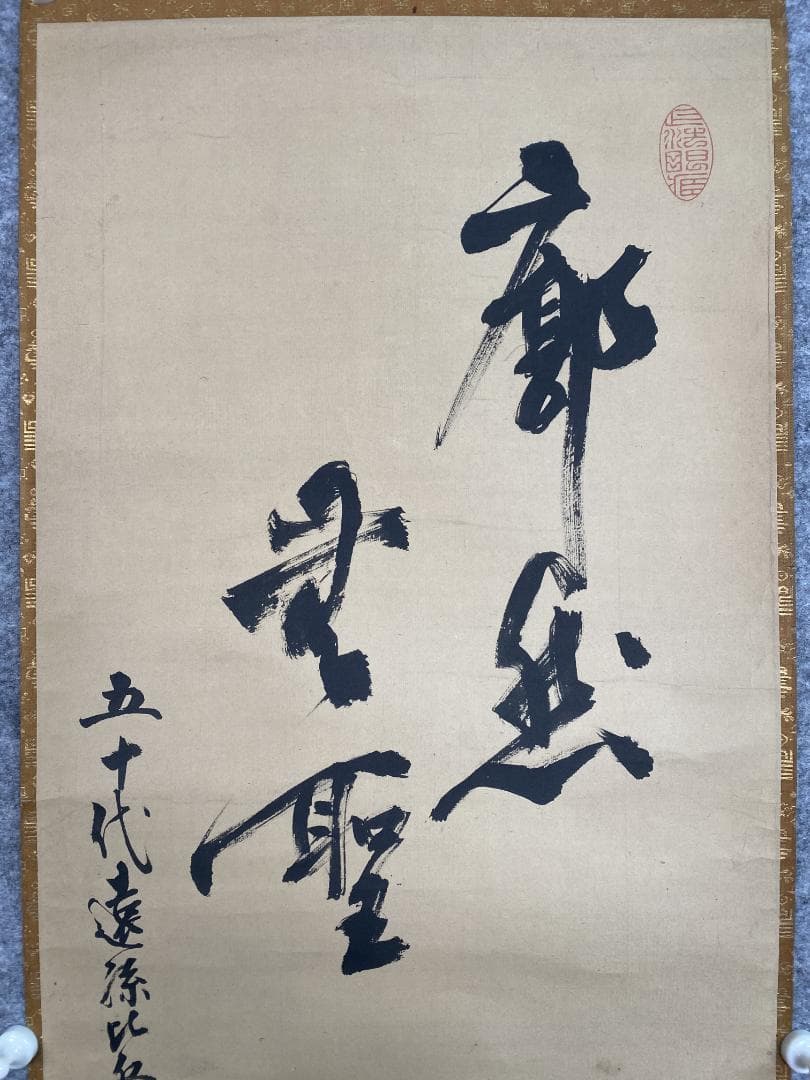 廓然
無聖
五十代遠孫比